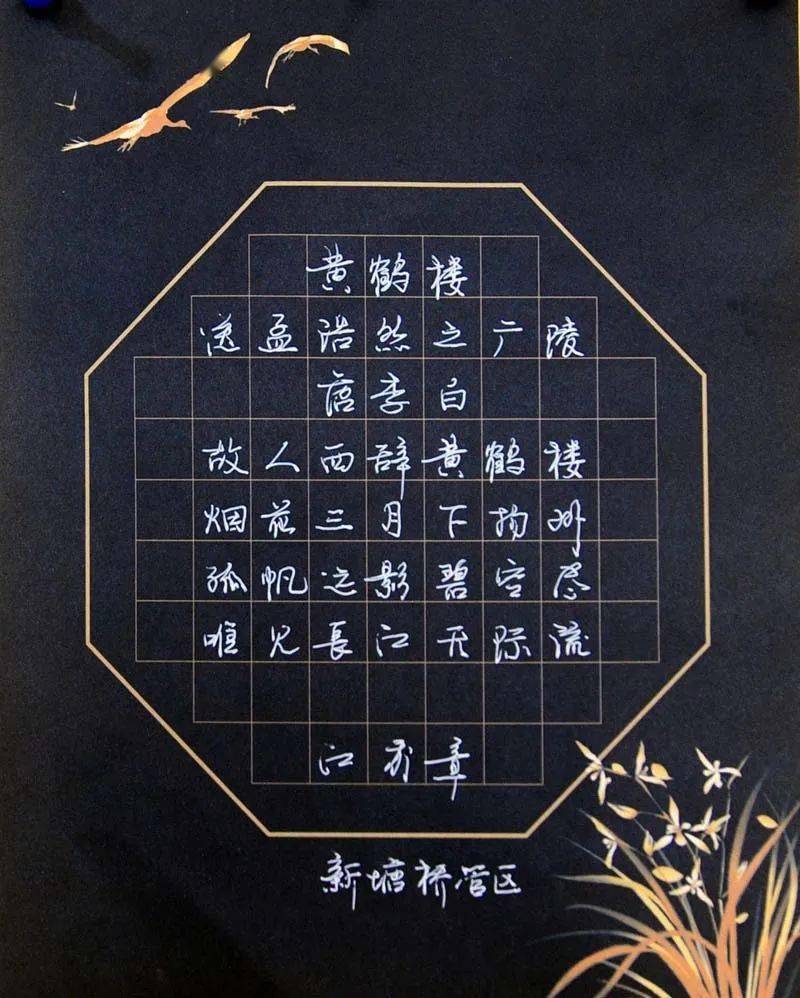 黄鹤楼
送孟浩然之广陵
唐李白
故人西辞黄鹤楼
烟花三月下扬州
孤帆远影碧空尽
唯见長江天际流
江 章
新塘桥管区